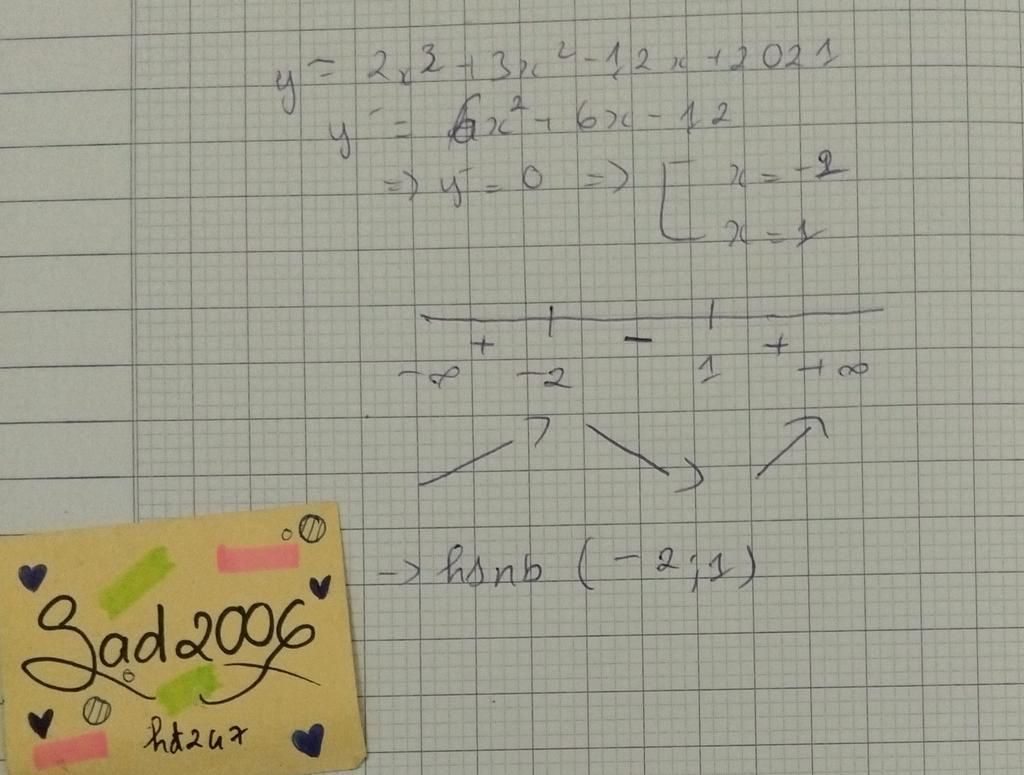 y = 2x³ + 3x² - 12x + 2021
y' = 6x² + 6x - 12
=> y' = 0 => [ x = -2
x = 1
+ - +
-∞ -2 1 +∞
-> hsnb (-2; 1)
Sad2006
hd247